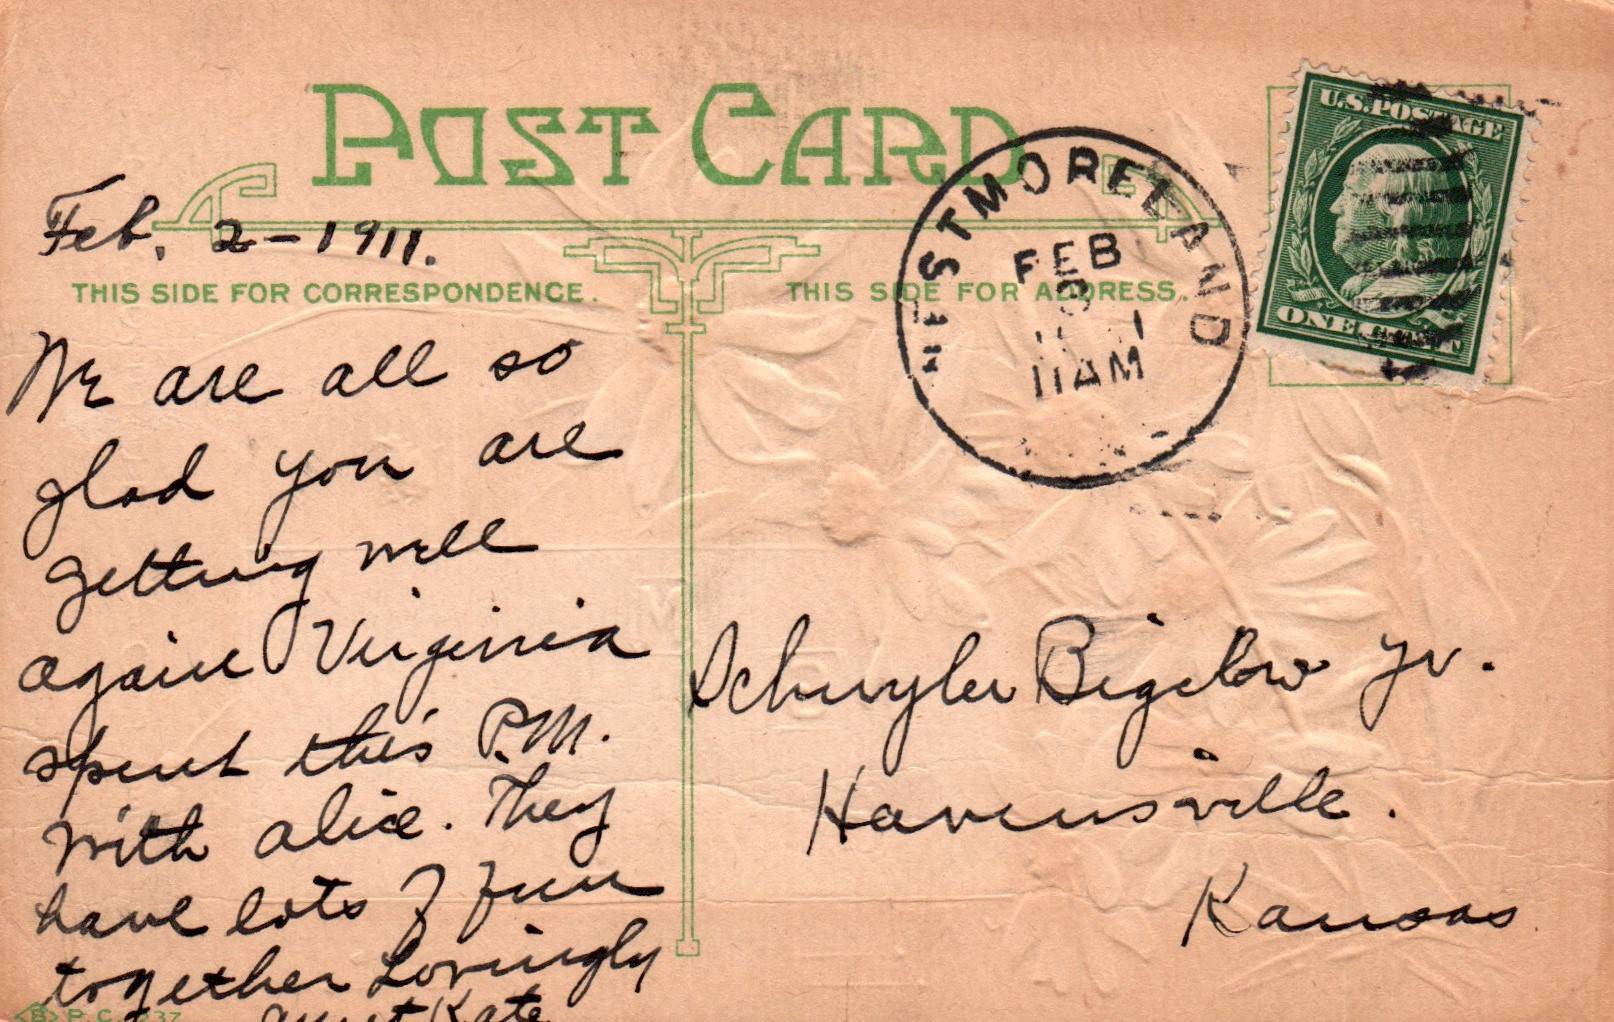 POST CARD
Feb. 2-1911.
THIS SIDE FOR CORRESPONDENCE.
We are all so
glad you are
getting well
again Virginia
spent this P.M.
with alice. They
have lots of fun
together Lovingly
aunt Kate
P.C.
THIS SIDE FOR ADDRESS.
WESTMORELAND
FEB
11AM
U.S.POSTAGE
ONE CENT
Schuyler Bigelow Jr.
Havensville.
Kansas